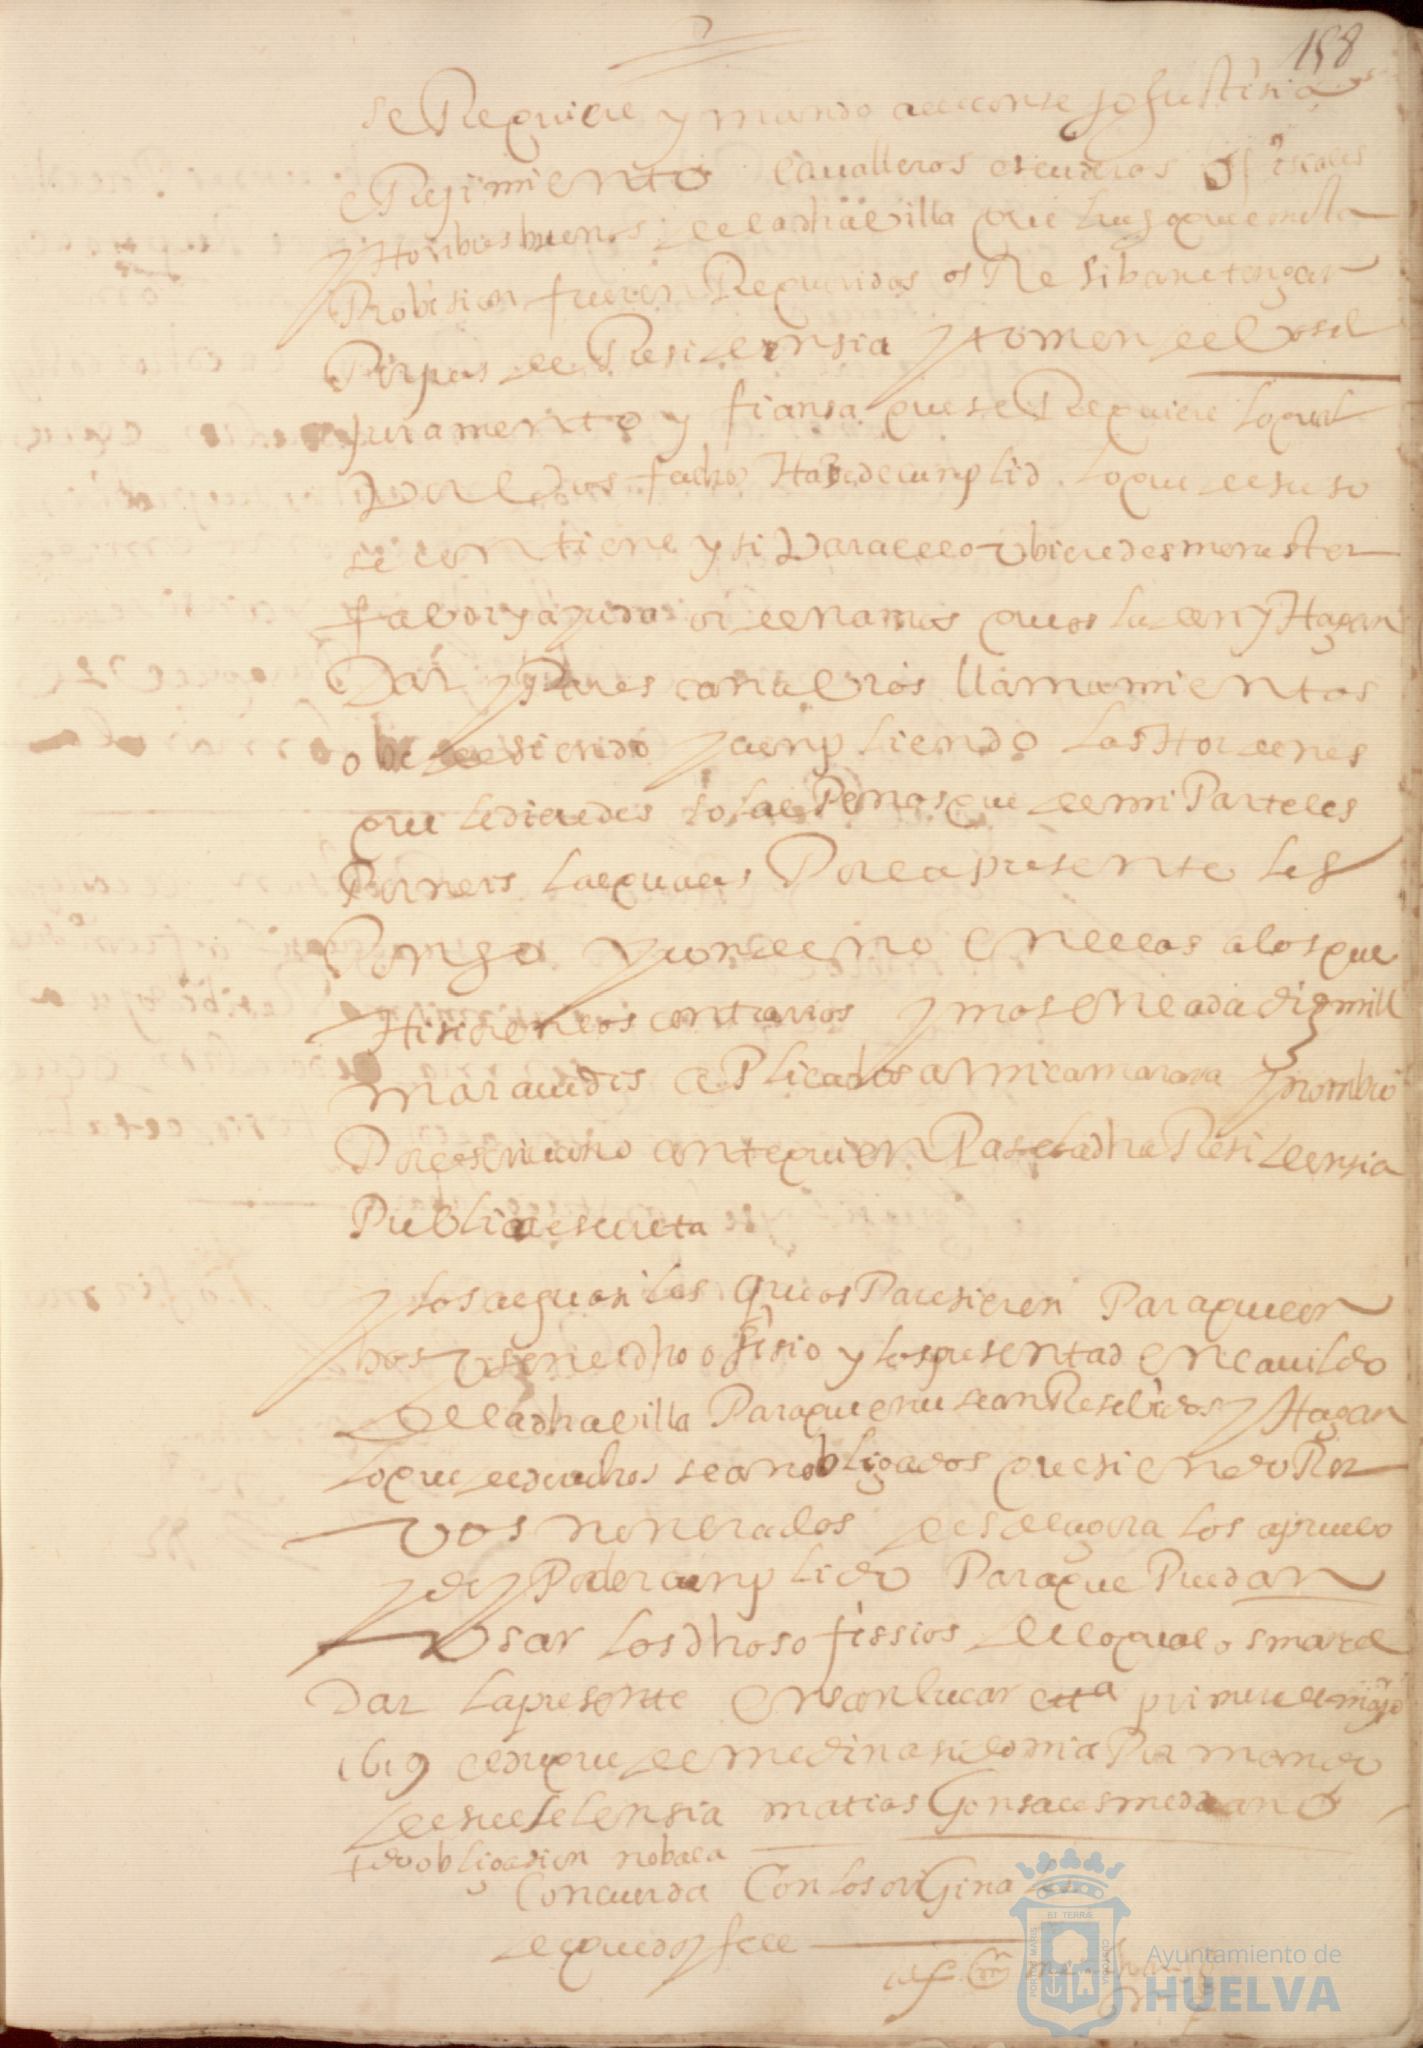 158
se Requiere y mando al conse Jo Justisia
e Regimiento cavalleros escuderos ofisiales
y Honbres buenos de la dha villa que luego que con esta
Probision fueren Requeridos os Resiban e tengan
Por jues de Residensia y tomen de vos el
juramento y fiansa que se Requiere lo qual
por el dos fecho Hased e cunplid lo que de suso
se contiene y si para ello ubieredes menester
favor y ayuda ordenamos que os la den y Hagan
Dar y
a vros llamamientos
obedesiendo y cunpliendo las Hordenes
que le dieredes so las Penas que de mi Parte les
Porners las quales Por la presente les
Pongo y condeno en ellas a los que
Hisieren lo contrario y mas en cada dies mill
maravedis aPlicados a mi camara y nombro
Por escrivano ante quien Pase la dha Residensia
Publica e secreta
y los alguasiles que os Paresieren Para que con
bos usen el dho ofisio y los presentad en cavildo
de la dha villa Para que en el sean Resebidos y Hagan
lo que de derecho sean obligados que siendo Por
vos nonbrados desde agora los apruebo
y doy Poder cunplido Para que Puedan
Usar los dhos ofissios de lo qual os mande
Dar la presente en sanlucar etta primero de mayo
1619 el duque de medina sidonia Por mando
de su eselensia matias Gonsales medrano
tdo obligasion no bala
Concuerda Con los oriGinales
de que doy fee
Ayuntamiento de
HUELVA